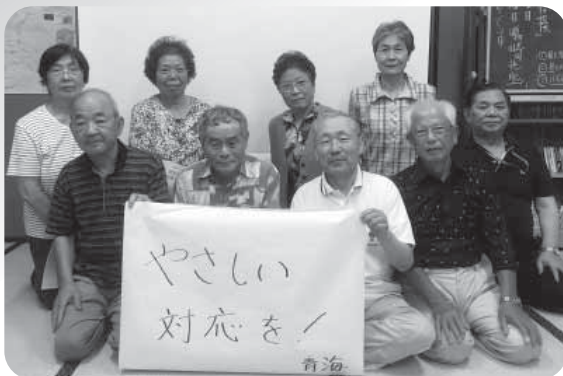 やさしい
対応を!
青海